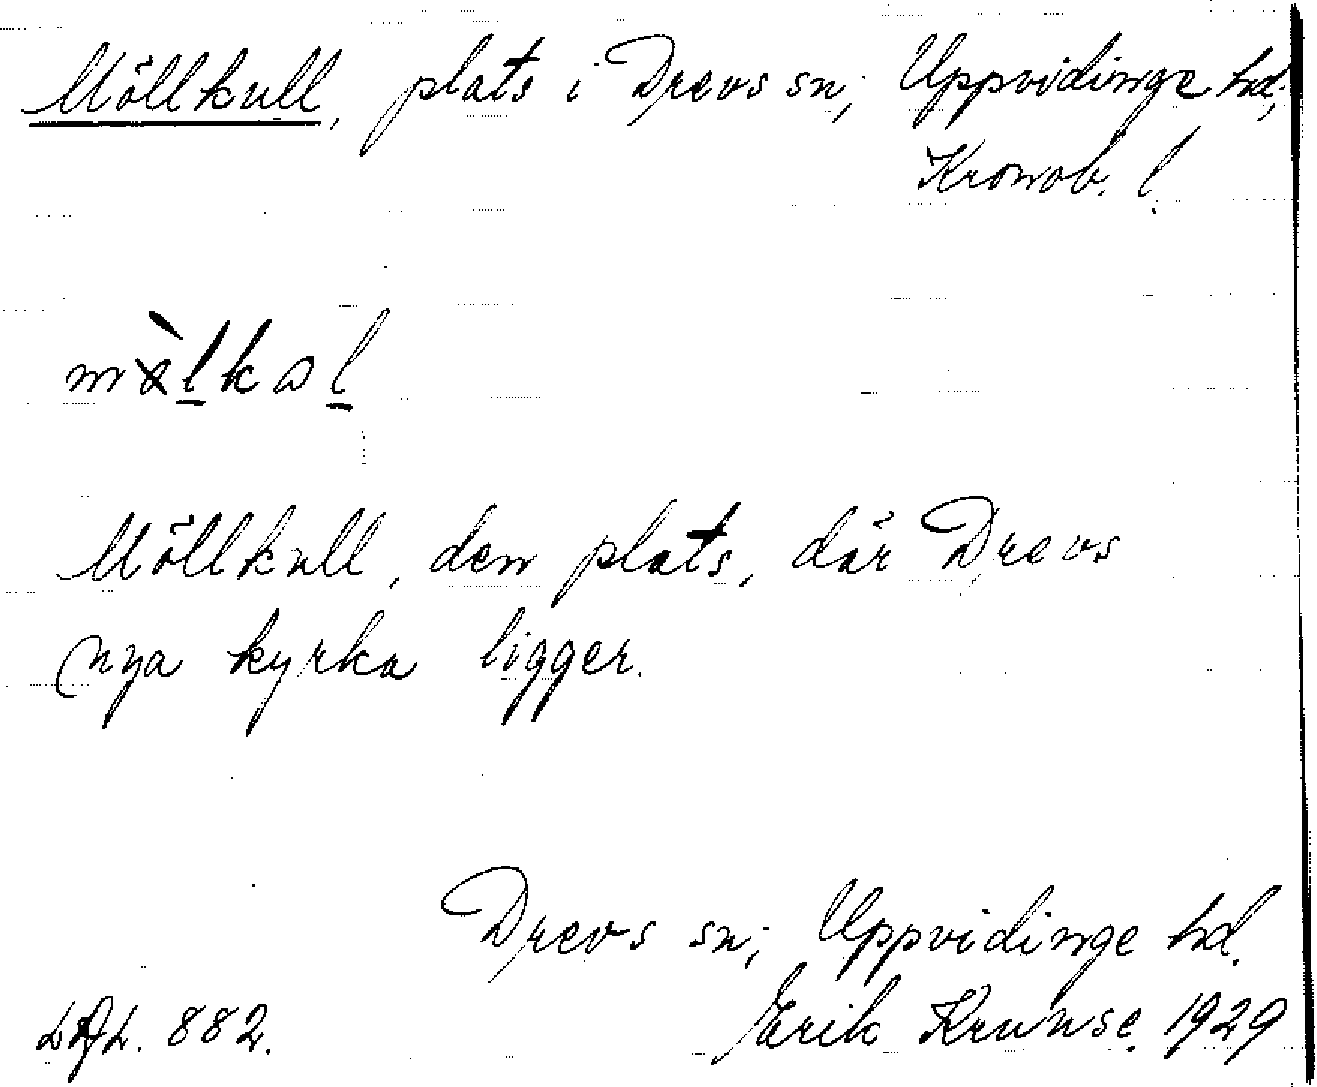 Möllkull, plats i Drevs sn; Uppvidinge hd;
Kronob. l.
Möllkull, den plats, där Drevs
nya kyrka ligger.
Drevs sn; Uppvidinge hd.
882. Erik Krunse. 1929